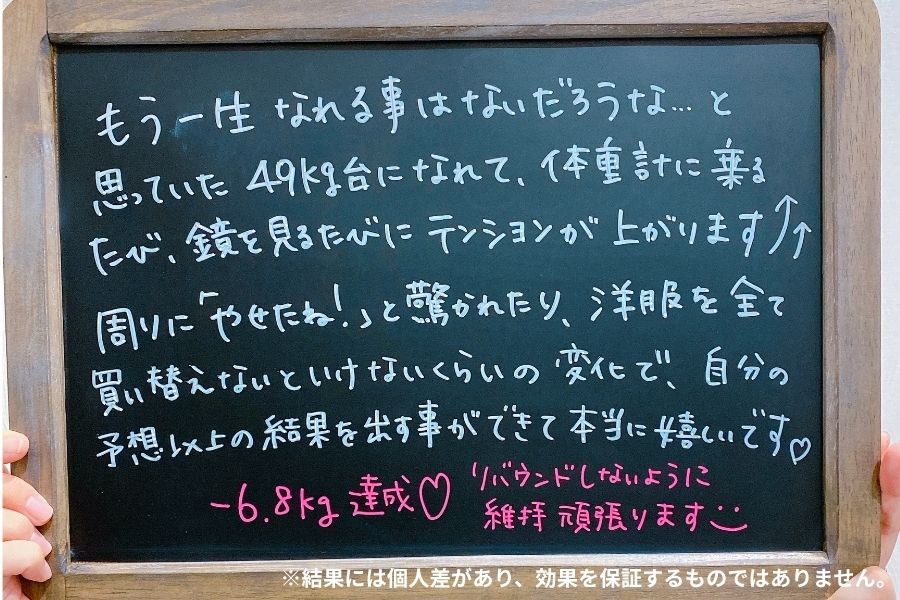 もう一生 なれる事はないだろうな…と
思っていた 49kg台になれて、体重計に乗る
たび、鏡を見るたびに テンションが 上がります↑↑
周りに「やせたね!」と驚かれたり、洋服を全て
買い替えないといけないくらいの 変化で、自分の
予想以上の結果を出す事ができて本当に嬉しいです♡
-6.8kg 達成♡ リバウンドしないように
維持 頑張ります
※結果には個人差があり、効果を保証するものではありません。